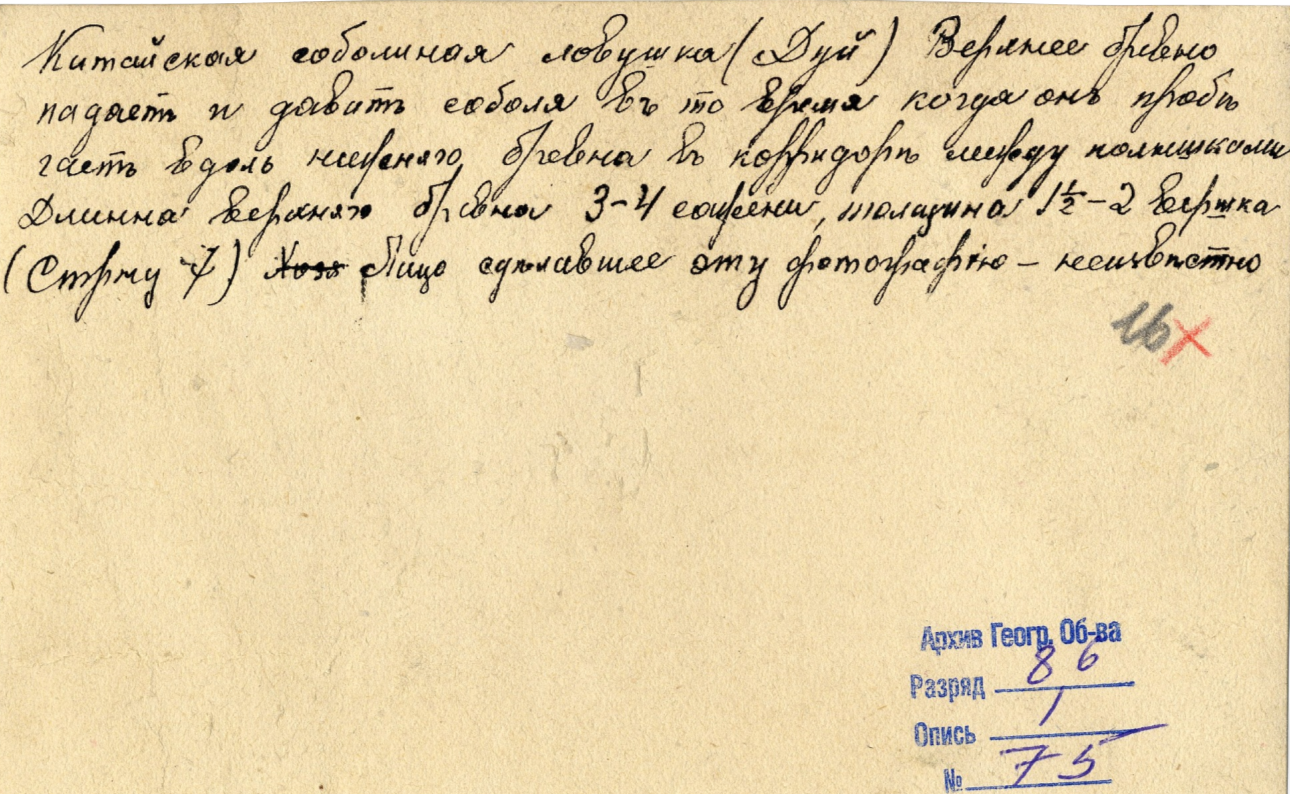 Китайская соболиная ловушка (Дуй) Верхнее бревно
падаетъ и давитъ соболя въ то время когда онъ пробѣ
гаетъ вдоль нижняго бревна въ корридорѣ между колышками
Длинна верхняго бревна 3-4 сажени, толщина 1½-2 вершка
(Стрну 7) Лицо сдѣлавшее эту фотографію - неизвѣстно
16 X
Архив Геогр. Об-ва
Разряд 86
Опись 1
№ 75